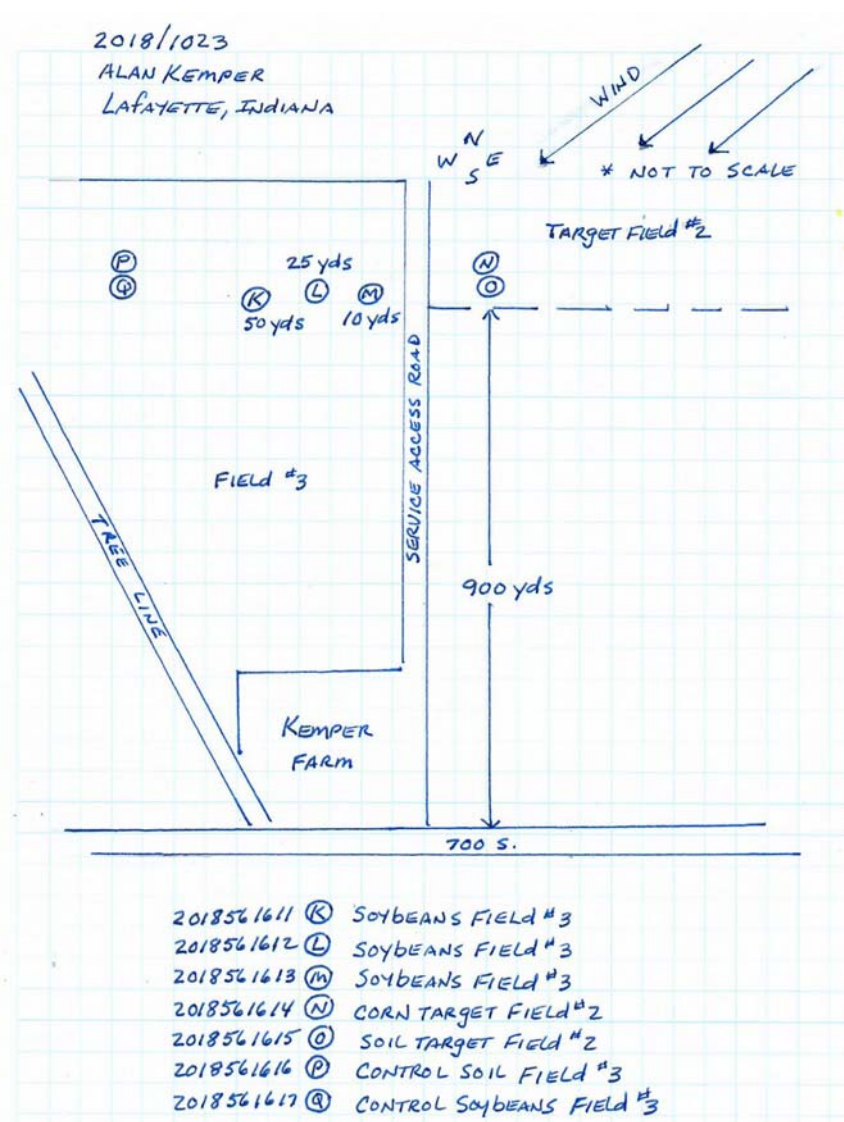 2018/1023
ALAN KEMPER
LAFAYETTE, INDIANA
WIND
N
W E
S
* NOT TO SCALE
TARGET FIELD #2
P
Q
25 yds
K L M
50 yds 10 yds
N
O
SERVICE ACCESS ROAD
FIELD #3
TREE LINE
900 yds
KEMPER
FARM
700 S.
2018561611 K SOYBEANS FIELD #3
2018561612 L SOYBEANS FIELD #3
2018561613 M SOYBEANS FIELD #3
2018561614 N CORN TARGET FIELD #2
2018561615 O SOIL TARGET FIELD #2
2018561616 P CONTROL SOIL FIELD #3
2018561617 Q CONTROL SOYBEANS FIELD #3